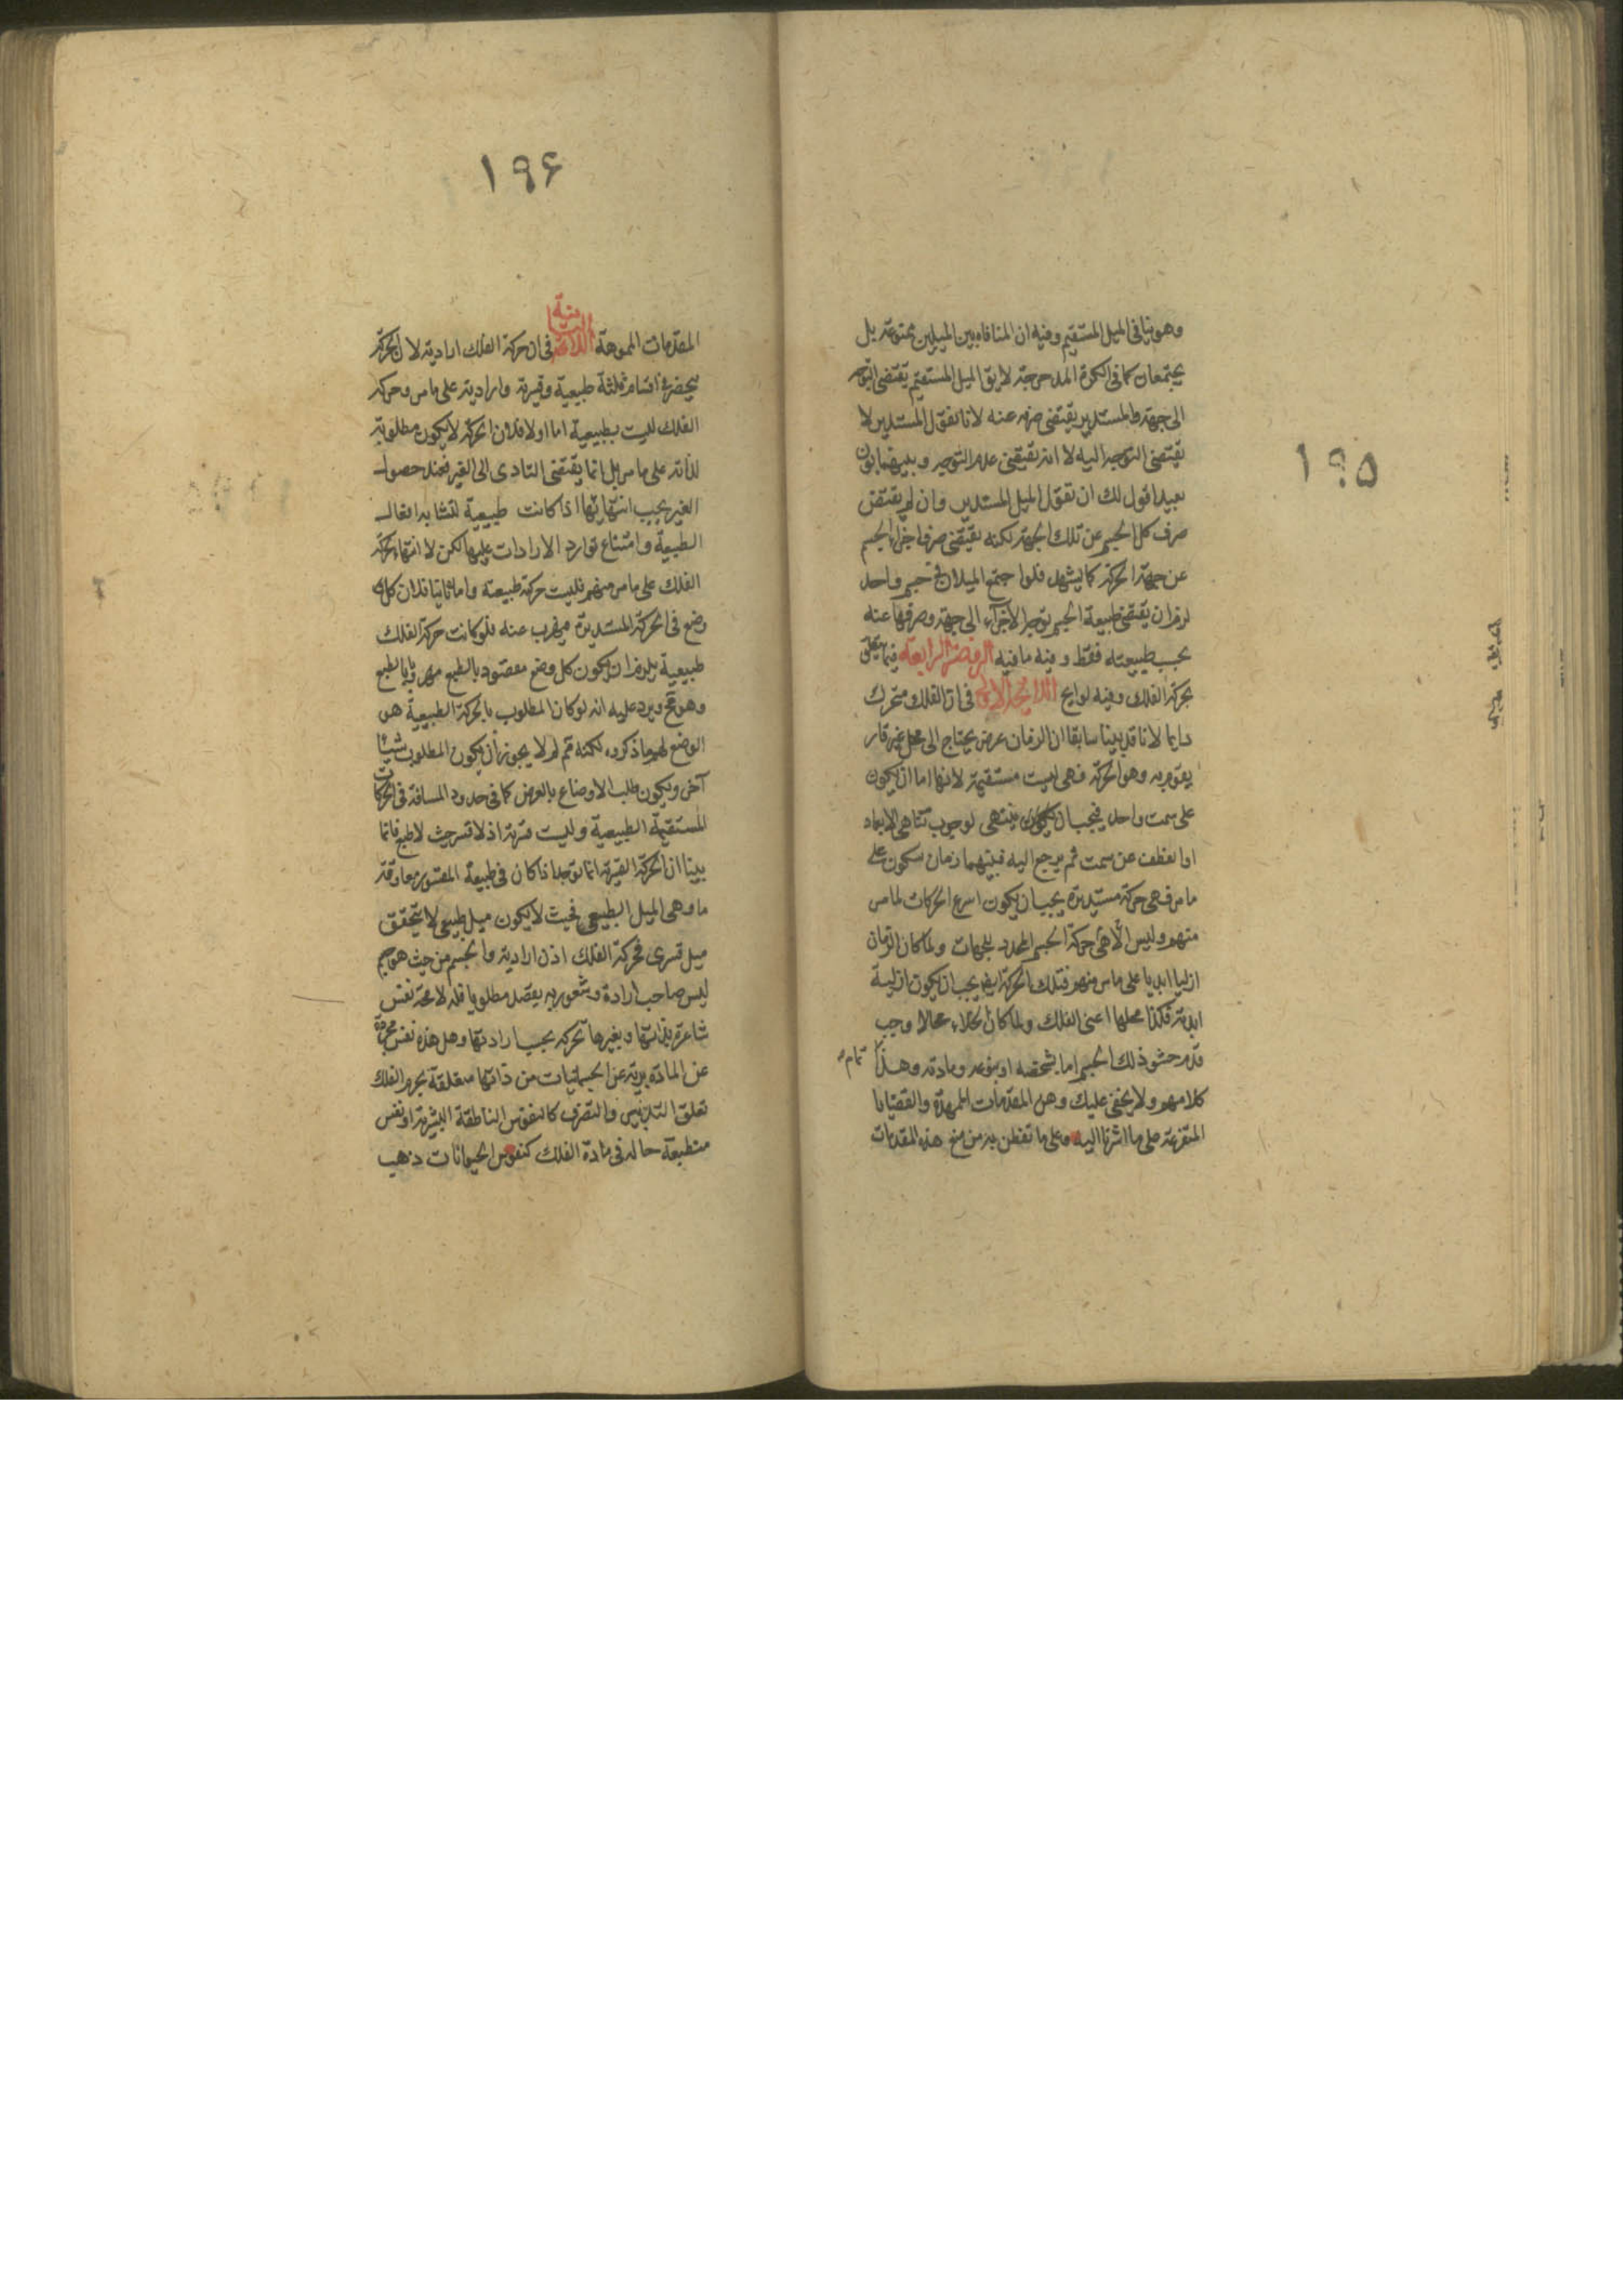 ١٩٥
وهو ينافى الميل المستقيم وفيه ان المنافاة بين الميلين ممنوعة بل
يجتمعان كما فى الكرة المدحرجة لايق الميل المستقيم يقتضى التوجه
الى جهة والمستدير يقتضى صرفه عنه لانا نقول المستدير لا
يقتضى التوجه اليه لا انه يقتضى عدم التوجه وبينهما بون
بعيد اقول لك ان تقول الميل المستدير وان لم يقتض
صرف كل الجسم عن تلك الجهة لكنه يقتضى صرف اجزاء الجسم
عن جهة الحركة كما يشهد فلو اجتمع الميلان فى جسم واحد
لزم ان يقتضى طبيعة الجسم توجه الاجزاء الى جهة وصرفها عنه
بحسب طبيعته فقط وفيه ما فيه الروضة الرابعة فيما يتعلق
بحركة الفلك وفيه لوايح اللايحة الاولى فى ان الفلك متحرك
دايما لانا قد بينا سابقا ان الزمان عرض يحتاج الى محل غير قار
يقوم به وهو الحركة فهى ليست مستقيمة لانها اما ان يكون
على سمت واحد فيجب ان يكون ينتهى لوجوب تناهى الابعاد
او انعطف عن سمت ثم يرجع اليه فبينهما زمان سكون على
ما مر فهى حركة مستديرة يجب ان يكون اسرع الحركات لما مر
منهم وليس الا هى حركة الجسم المحدد للجهات ولما كان الزمان
ازليا ابديا على ما مر منهم فتلك الحركة ايضا يجب ان يكون ازلية
ابدية فكذا محلها اعنى الفلك ولما كان الخلاء محالا وجب
قدم حشو ذلك الجسم اما بشخصه او بنوعه ومادته وهذا تمام
كلامهم ولا يخفى عليك وهن المقدمات الممهدة والقضايا
المتفرعة على ما اشرنا اليه وعلى ما تفطن به من منع هذه المقدمات
١٩۶
المقدمات المموهة اللايحة الثانية فى ان حركة الفلك ارادية لان الحركة
ينحصر فى اقسام ثلثة طبيعية وقسرية وارادية على ما مر وحركة
الفلك ليست بطبيعية اما اولا فلان الحركة لا يكون مطلوبة
لذاته على ما مر بل انما يقتضى التادى الى الغير فعند حصول
الغير يجب انتهائها اذا كانت طبيعية لتشابه افعال
الطبيعة وامتناع توارد الارادات عليها لكن لا انتهاء لحركة
الفلك على ما مر منهم فليست حركة طبيعية واما ثانيا فلان كل
وضع فى الحركة المستديرة مهرب عنه فلو كانت حركة الفلك
طبيعية يلزم ان يكون كل وضع مقصود بالطبع مهروبا بالطبع
وهو مح ويرد عليه انه لو كان المطلوب بالحركة الطبيعية هو
الوضع لهم ما ذكروه لكنه مم لم لا يجوز ان يكون المطلوب شيئا
آخر ويكون طلب الاوضاع بالعرض كما فى حدود المسافة فى الحركات
المستقيمة الطبيعية وليست قسرية اذ لا قسر حيث لا طبع فانا
بينا ان الحركة القسرية انما توجد اذا كان فى طبيعة المقسور معاوقة
ما وهى الميل الطبيعى فحيث لا يكون ميل طبيعى لا يتحقق
ميل قسرى فحركة الفلك اذن ارادية والجسم من حيث هو جسم
ليس صاحب ارادة وشعور به يقصد مطلوبا فله لا محة نفس
شاعرة بذاتها وبغيرها تحركه بحسب ارادتها وهل هذه نفس مجردة
عن المادة برية عن الجسمانيات من ذاتها متعلقة بجرم الفلك
تعلق التدبير والتصرف كالنفوس الناطقة البشرية او نفس
منطبعة حالة فى مادة الفلك كنفوس الحيوانات ذهب